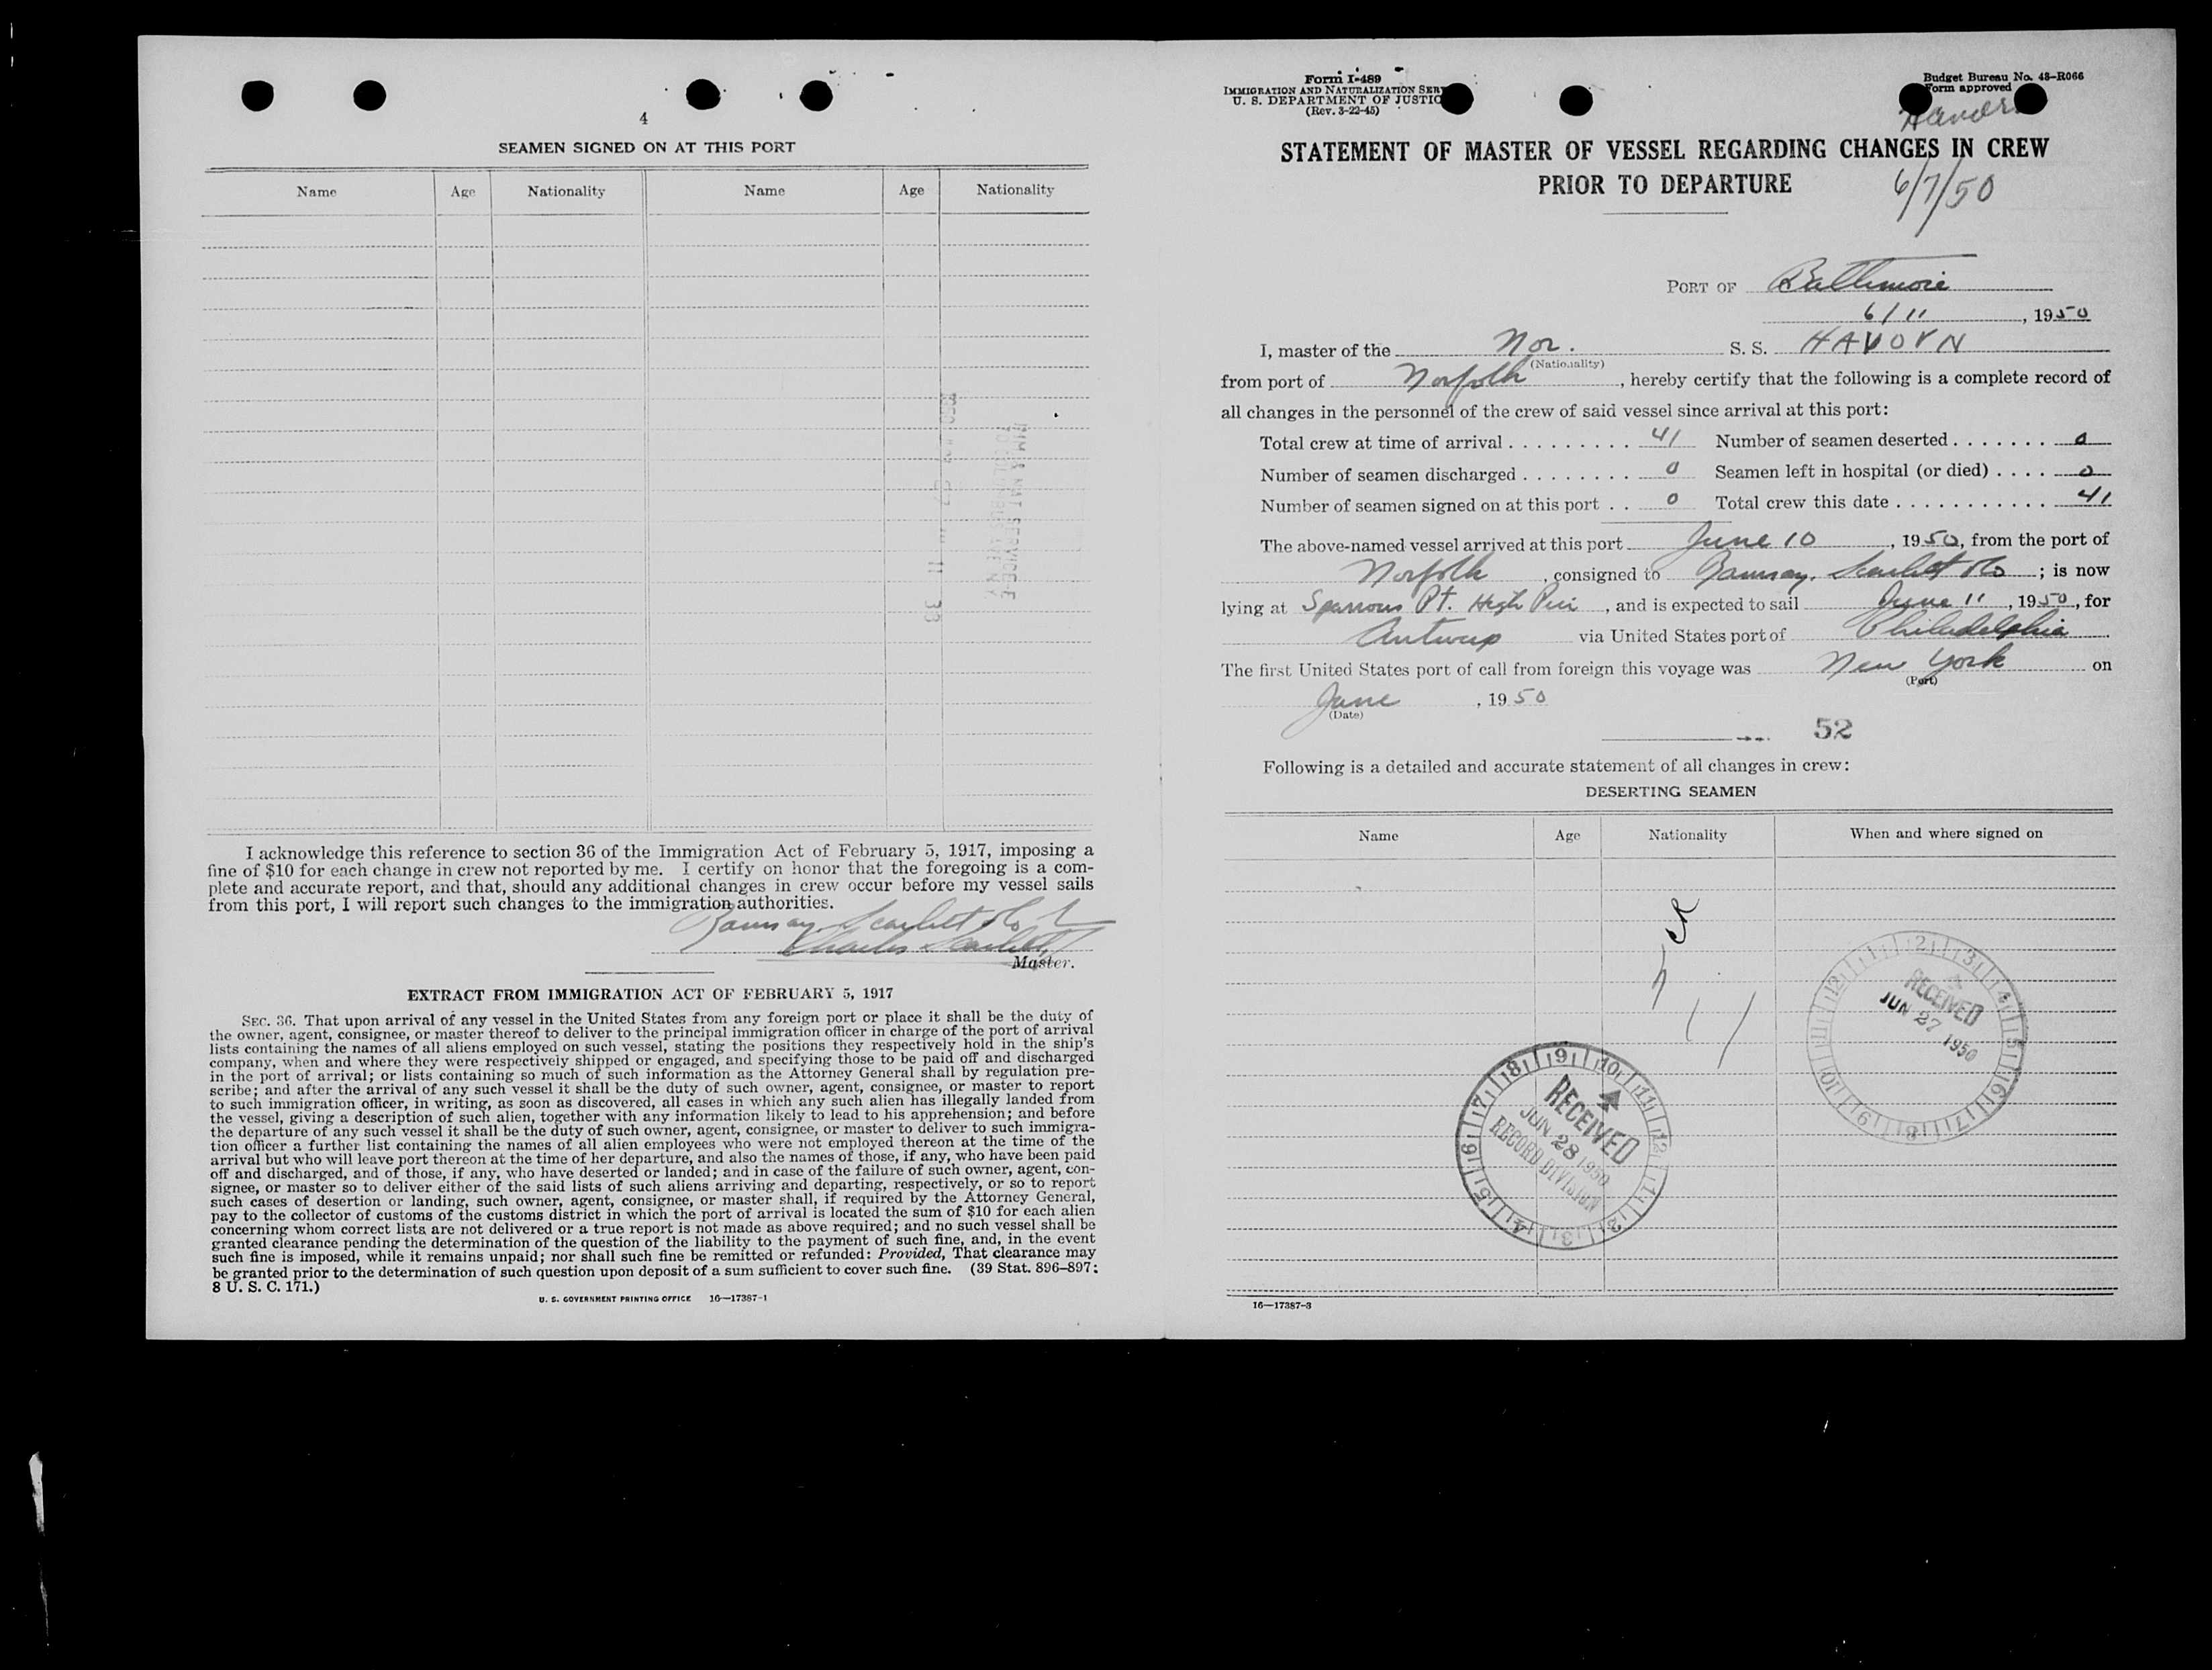 4
SEAMEN SIGNED ON AT THIS PORT
Name Age Nationality Name Age Nationality
I acknowledge this reference to section 36 of the Immigration Act of February 5, 1917, imposing a
fine of $10 for each change in crew not reported by me. I certify on honor that the foregoing is a com-
plete and accurate report, and that, should any additional changes in crew occur before my vessel sails
from this port, I will report such changes to the immigration authorities.
Ramsay, Scarlett & Co
Charles Scarlett
Master.
EXTRACT FROM IMMIGRATION ACT OF FEBRUARY 5, 1917
SEC. 36. That upon arrival of any vessel in the United States from any foreign port or place it shall be the duty of
the owner, agent, consignee, or master thereof to deliver to the principal immigration officer in charge of the port of arrival
lists containing the names of all aliens employed on such vessel, stating the positions they respectively hold in the ship's
company, when and where they were respectively shipped or engaged, and specifying those to be paid off and discharged
in the port of arrival; or lists containing so much of such information as the Attorney General shall by regulation pre-
scribe; and after the arrival of any such vessel it shall be the duty of such owner, agent, consignee, or master to report
to such immigration officer, in writing, as soon as discovered, all cases in which any such alien has illegally landed from
the vessel, giving a description of such alien, together with any information likely to lead to his apprehension; and before
the departure of any such vessel it shall be the duty of such owner, agent, consignee, or master to deliver to such immigra-
tion officer a further list containing the names of all alien employees who were not employed thereon at the time of the
arrival but who will leave port thereon at the time of her departure, and also the names of those, if any, who have been paid
off and discharged, and of those, if any, who have deserted or landed; and in case of the failure of such owner, agent, con-
signee, or master so to deliver either of the said lists of such aliens arriving and departing, respectively, or so to report
such cases of desertion or landing, such owner, agent, consignee, or master shall, if required by the Attorney General,
pay to the collector of customs of the customs district in which the port of arrival is located the sum of $10 for each alien
concerning whom correct lists are not delivered or a true report is not made as above required; and no such vessel shall be
granted clearance pending the determination of the question of the liability to the payment of such fine, and, in the event
such fine is imposed, while it remains unpaid; nor shall such fine be remitted or refunded: Provided, That clearance may
be granted prior to the determination of such question upon deposit of a sum sufficient to cover such fine. (39 Stat. 896–897;
8 U. S. C. 171.)
U. S. GOVERNMENT PRINTING OFFICE 16—17387-1
Form I-489
IMMIGRATION AND NATURALIZATION SER
U. S. DEPARTMENT OF JUSTIC
(Rev. 3-22-45)
Budget Bureau No. 43-R066
Form approved
STATEMENT OF MASTER OF VESSEL REGARDING CHANGES IN CREW
PRIOR TO DEPARTURE
6/7/50
PORT OF Baltimore
6/11, 1950
I, master of the Nor. S. S. HAVORN
(Nationality)
from port of Norfolk, hereby certify that the following is a complete record of
all changes in the personnel of the crew of said vessel since arrival at this port:
Total crew at time of arrival 41 Number of seamen deserted 0
Number of seamen discharged 0 Seamen left in hospital (or died) 0
Number of seamen signed on at this port 0 Total crew this date 41
The above-named vessel arrived at this port June 10, 1950, from the port of
Norfolk, consigned to Ramsay, Scarlett & Co; is now
lying at Sparrows Pt. High Pier, and is expected to sail June 11, 1950, for
Antwerp via United States port of Philadelphia.
The first United States port of call from foreign this voyage was New York on
(Port)
June, 1950
(Date)
52
Following is a detailed and accurate statement of all changes in crew:
DESERTING SEAMEN
Name Age Nationality When and where signed on
RECEIVED
JUN 27 1950
RECEIVED
JUN 28 1950
RECORD DIVISION
16—17387-3